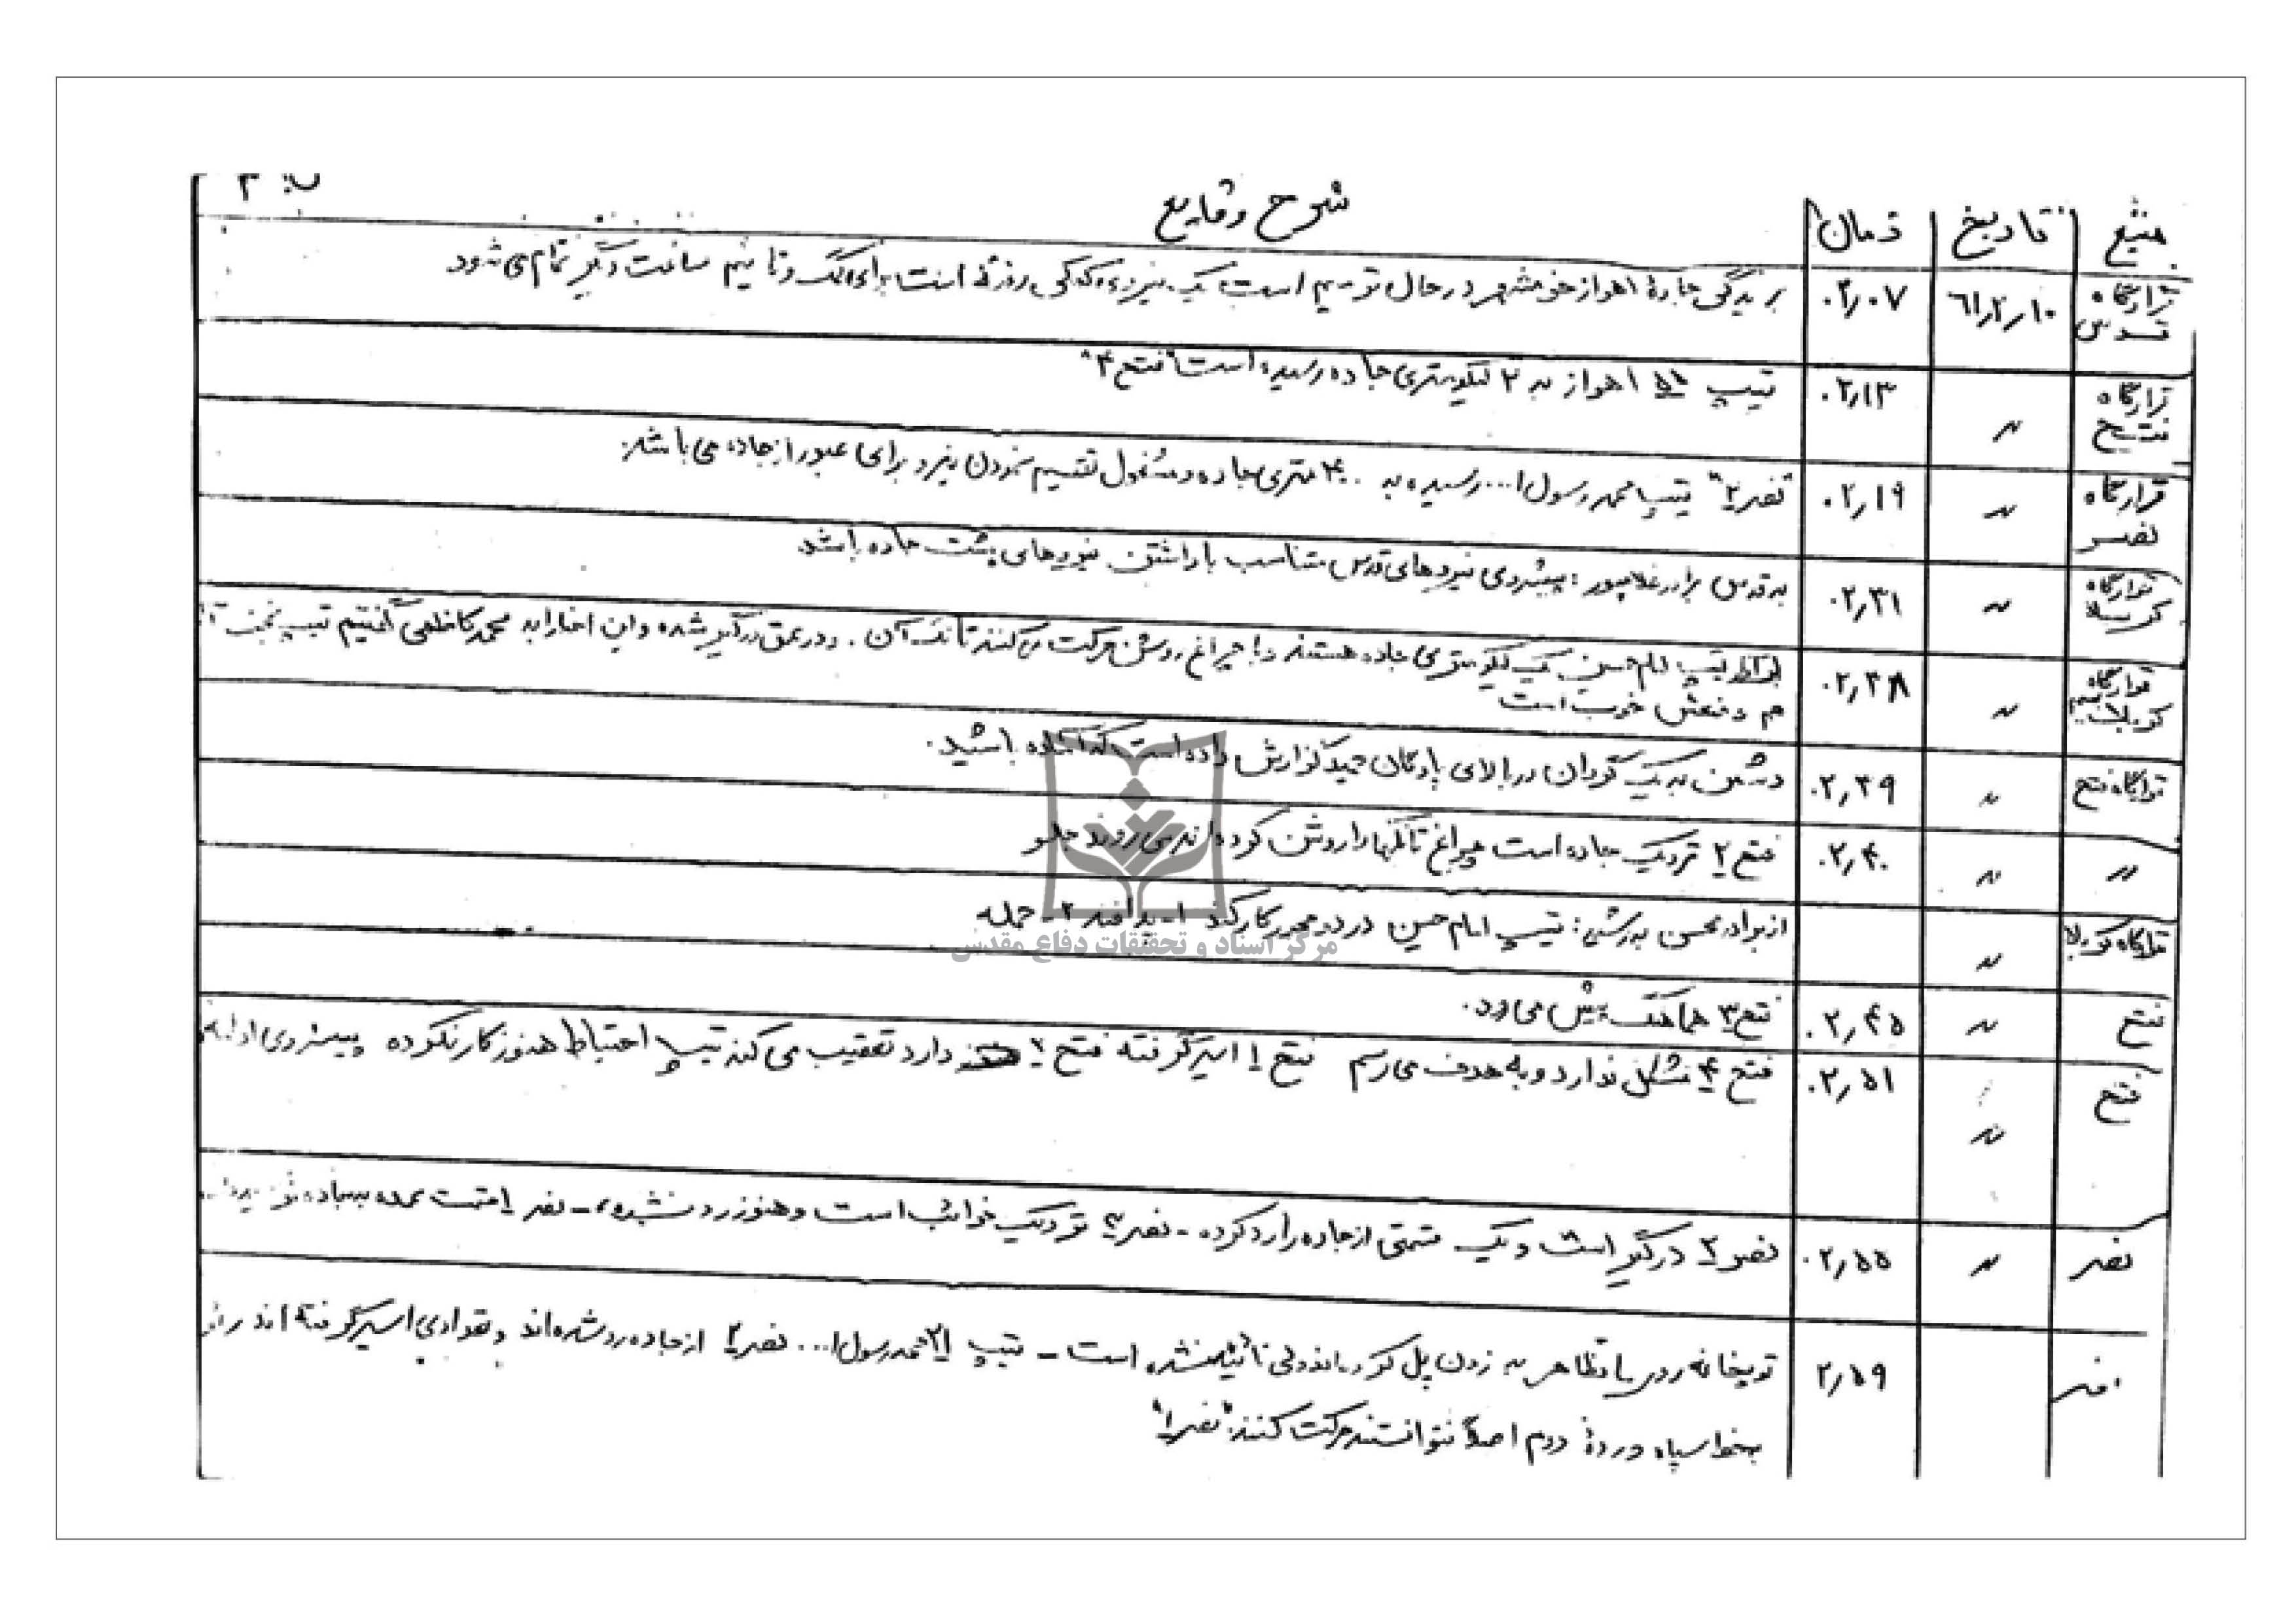 ب: ۲
منبع تاریخ زمان شرح وقایع
قرارگاه قدس ۶۱/۲/۱۰ ۰۲/۰۷ بریدگی جادهٔ اهواز خرمشهر در حال ترمیم است یک نیروی کمکی رفته است برای کمک و تا نیم ساعت دیگر تمام می شود
قرارگاه فتح " ۰۲/۱۳ تیپ ۵۱ اهواز به ۲ کیلومتری جاده رسیده است "فتح ۴"
قرارگاه نصر " ۰۲/۱۹ "نصر ۲" تیپ محمد رسول ا... رسیده به ۴۰۰ متری جاده و مشغول تقسیم نمودن نیرو برای عبور از جاده می باشد.
قرارگاه کربلا " ۰۲/۳۱ به قدس برادر غلامپور: پیشروی نیروهای قدس متناسب با داشتن نیروهای پشت جاده باشد
قرارگاه کربلا " ۰۲/۳۸ تیپ امام حسین یک کیلومتری جاده هستند و با چراغ روشن حرکت می کنند تانک آن. و در عمق درگیر شده و این اخبار را به محمد کاظمی گفتیم تیپ نجف
هم وضعش خوب است
قرارگاه فتح " ۰۲/۳۹ دشمن به یک گردان در بالای پادگان حمید گزارش داده است که آماده باشید.
" " ۰۲/۴۰ فتح ۲ نزدیک جاده است چراغ تانکها را روشن کرده اند می روند جلو
قرارگاه کربلا " از برادر محسن به رشید: تیپ امام حسین در دو محور کار کند ۱- پدافند ۲- حمله
فتح " ۰۲/۴۵ فتح ۳ هماهنگ پیش می رود.
فتح " ۰۲/۵۱ فتح ۴ مشکل ندارد و به هدف می رسم فتح ۱ اسیر گرفته فتح ۲ دارد تعقیب می کند تیپ احتیاط هنوز کار نکرده پیشروی
نصر " ۰۲/۵۵ نصر ۲ درگیر است و یک قسمتی از جاده را رد کرده - نصر ۳ نزدیک است و هنوز رد نشده - نصر ۱ قسمت عمده به جاده
نصر ۲/۵۹ توپخانه روی تظاهر به زدن پل کرده اند ولی نشده است - تیپ ۲۷ محمد رسول ا... نصر ۲ از جاده رد شده اند و تعدادی اسیر گرفته اند
بخط سپاه و ردهٔ دوم اصلاً نتوانستند حرکت کنند. "نصر ۱"
مرکز اسناد و تحقیقات دفاع مقدس